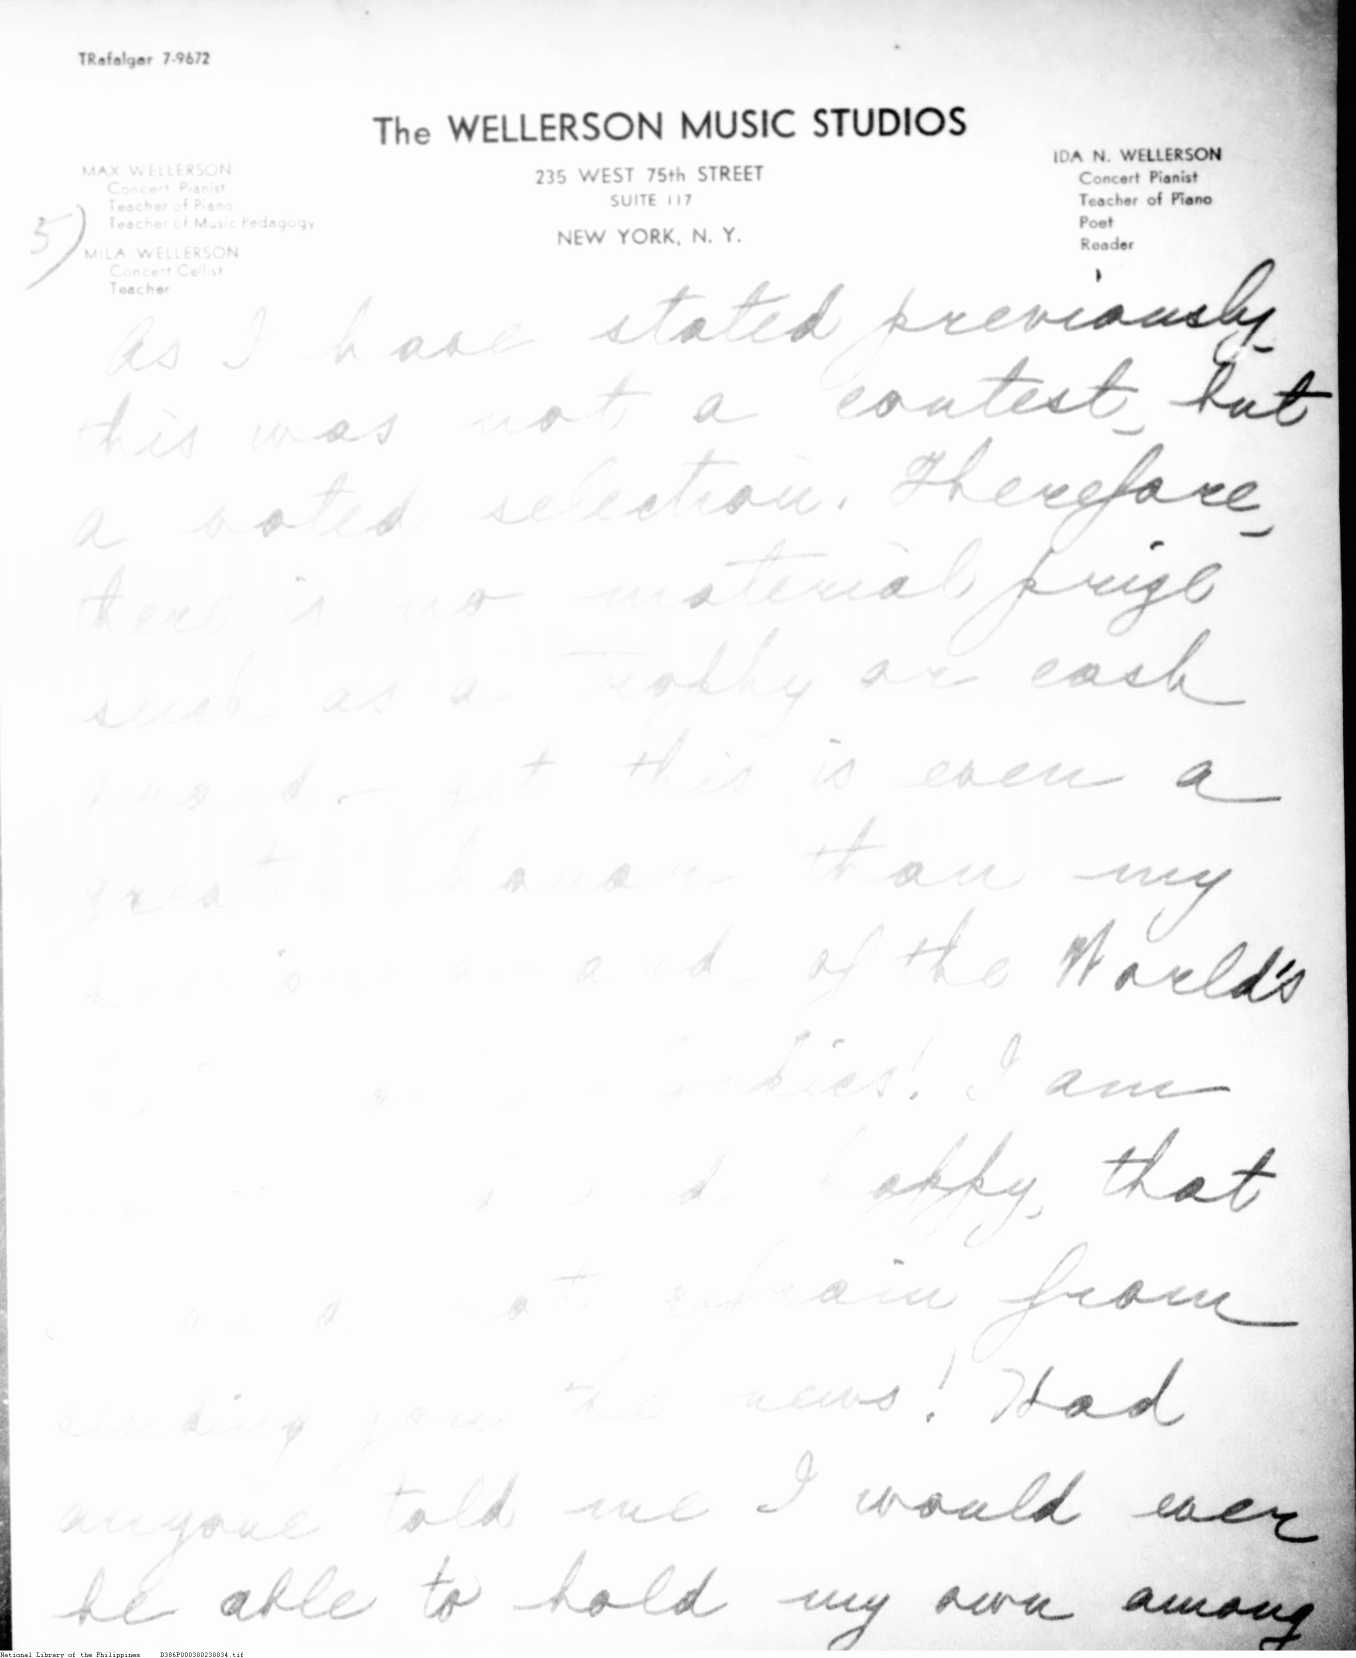 TRafalgar 7-9672
The WELLERSON MUSIC STUDIOS
235 WEST 75th STREET
SUITE 117
NEW YORK, N. Y.
MAX WELLERSON
Concert Pianist
Teacher of Piano
Teacher of Music Pedagogy
MILA WELLERSON
Concert Cellist
Teacher
IDA N. WELLERSON
Concert Pianist
Teacher of Piano
Poet
Reader
5)
As I have stated previously,
this was not a contest, but
a voted selection. Therefore,
there is no material prize
such as a trophy or cash
this is even a
greater honor than my
of the World's
I am
happy, that
not refrain from
sending you the news! Had
anyone told me I would ever
be able to hold my own among
National Library of the Philippines D386P000380238834.tif